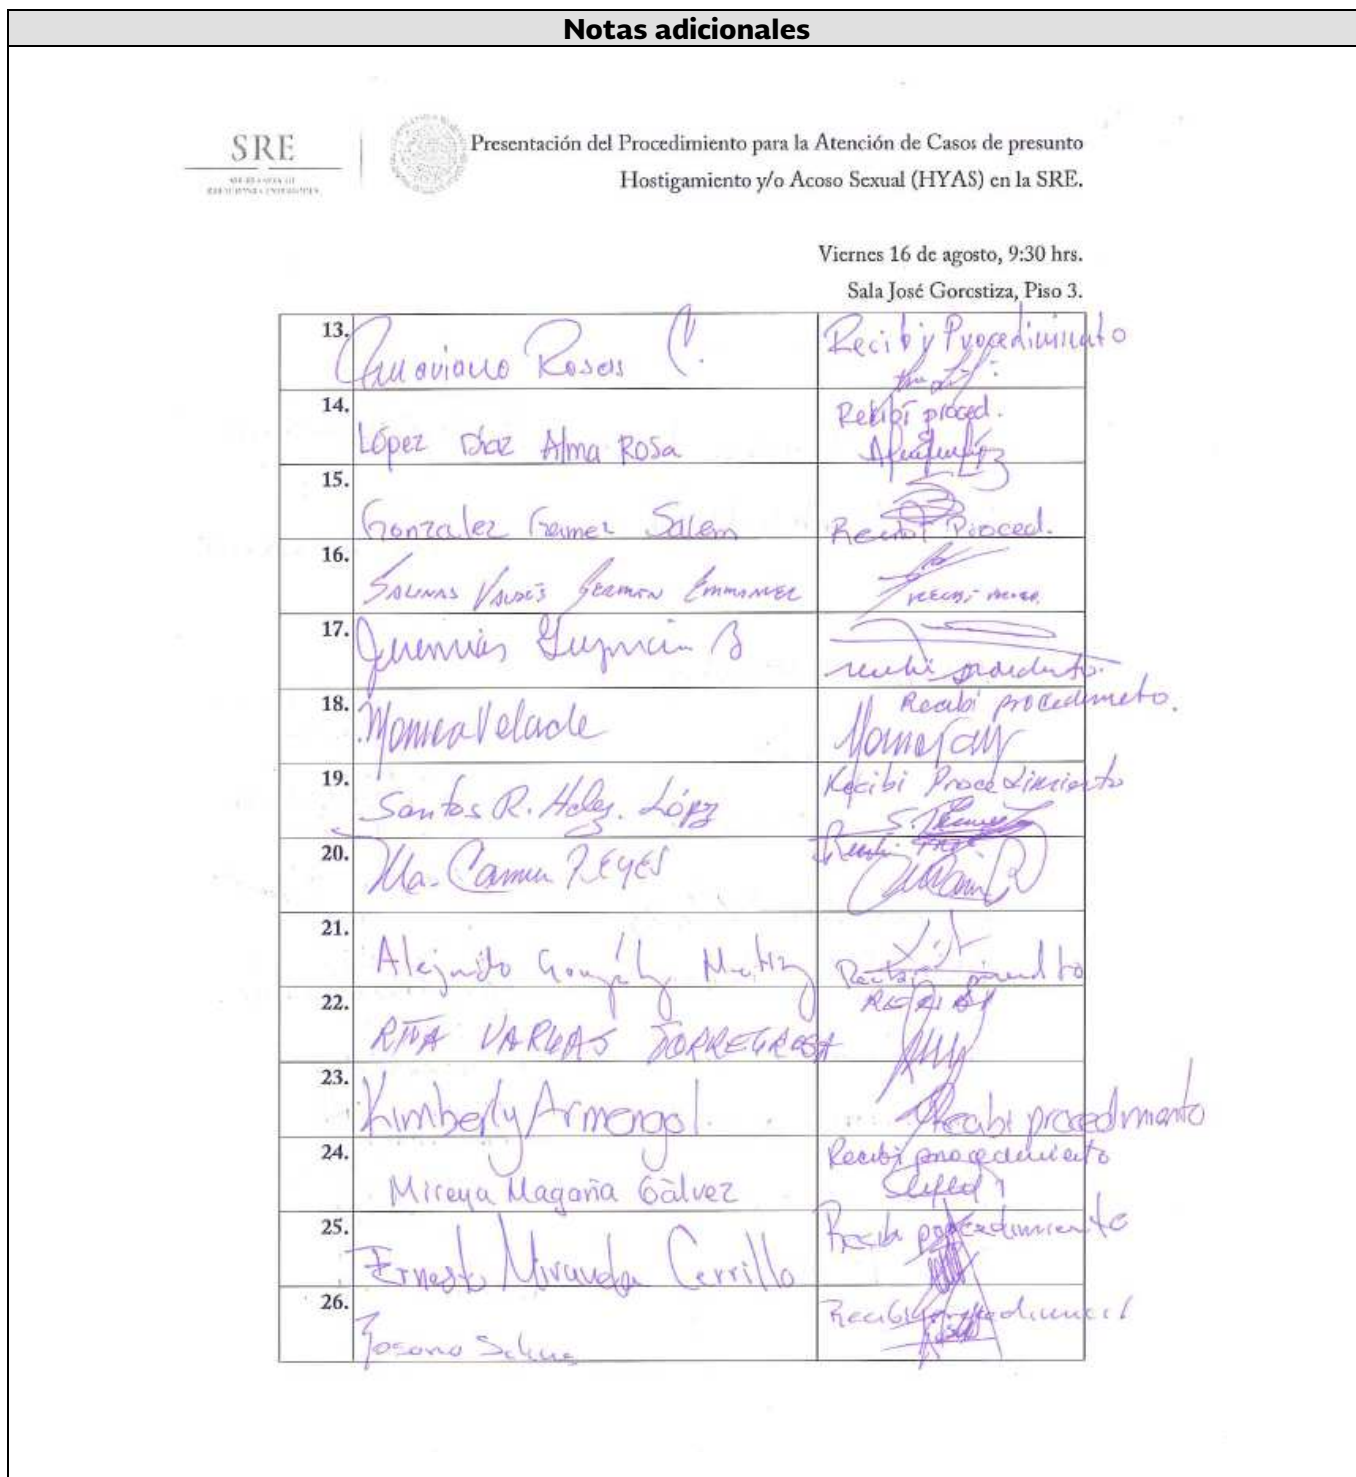 Notas adicionales
SRE
SECRETARÍA DE
RELACIONES EXTERIORES
Presentación del Procedimiento para la Atención de Casos de presunto
Hostigamiento y/o Acoso Sexual (HYAS) en la SRE.
Viernes 16 de agosto, 9:30 hrs.
Sala José Gorostiza, Piso 3.
13. Rosas C. Recibí Procedimiento
14. López Díaz Alma Rosa Recibí proced.
15. Gonzalez Gamez Salem Recibí Proced.
16. Salinas Valdés German Emmanuel recibí
17. Jeremias Guzmán B recibí
18. Monica Velarde Recibí procedimeto.
19. Santos R. Hdez. López Recibi Procedimiento
20. Ma. Carmen REYES Recibi
21. Alejandro González Recibi
22. RITA VARGAS TORREGROSA
23. Kimberly Armengol. Recibi procedimiento
24. Mireya Magaña Gálvez Recibí procedimiento
25. Ernesto Miranda Cerrillo Recibi procedimiento
26. Recibí